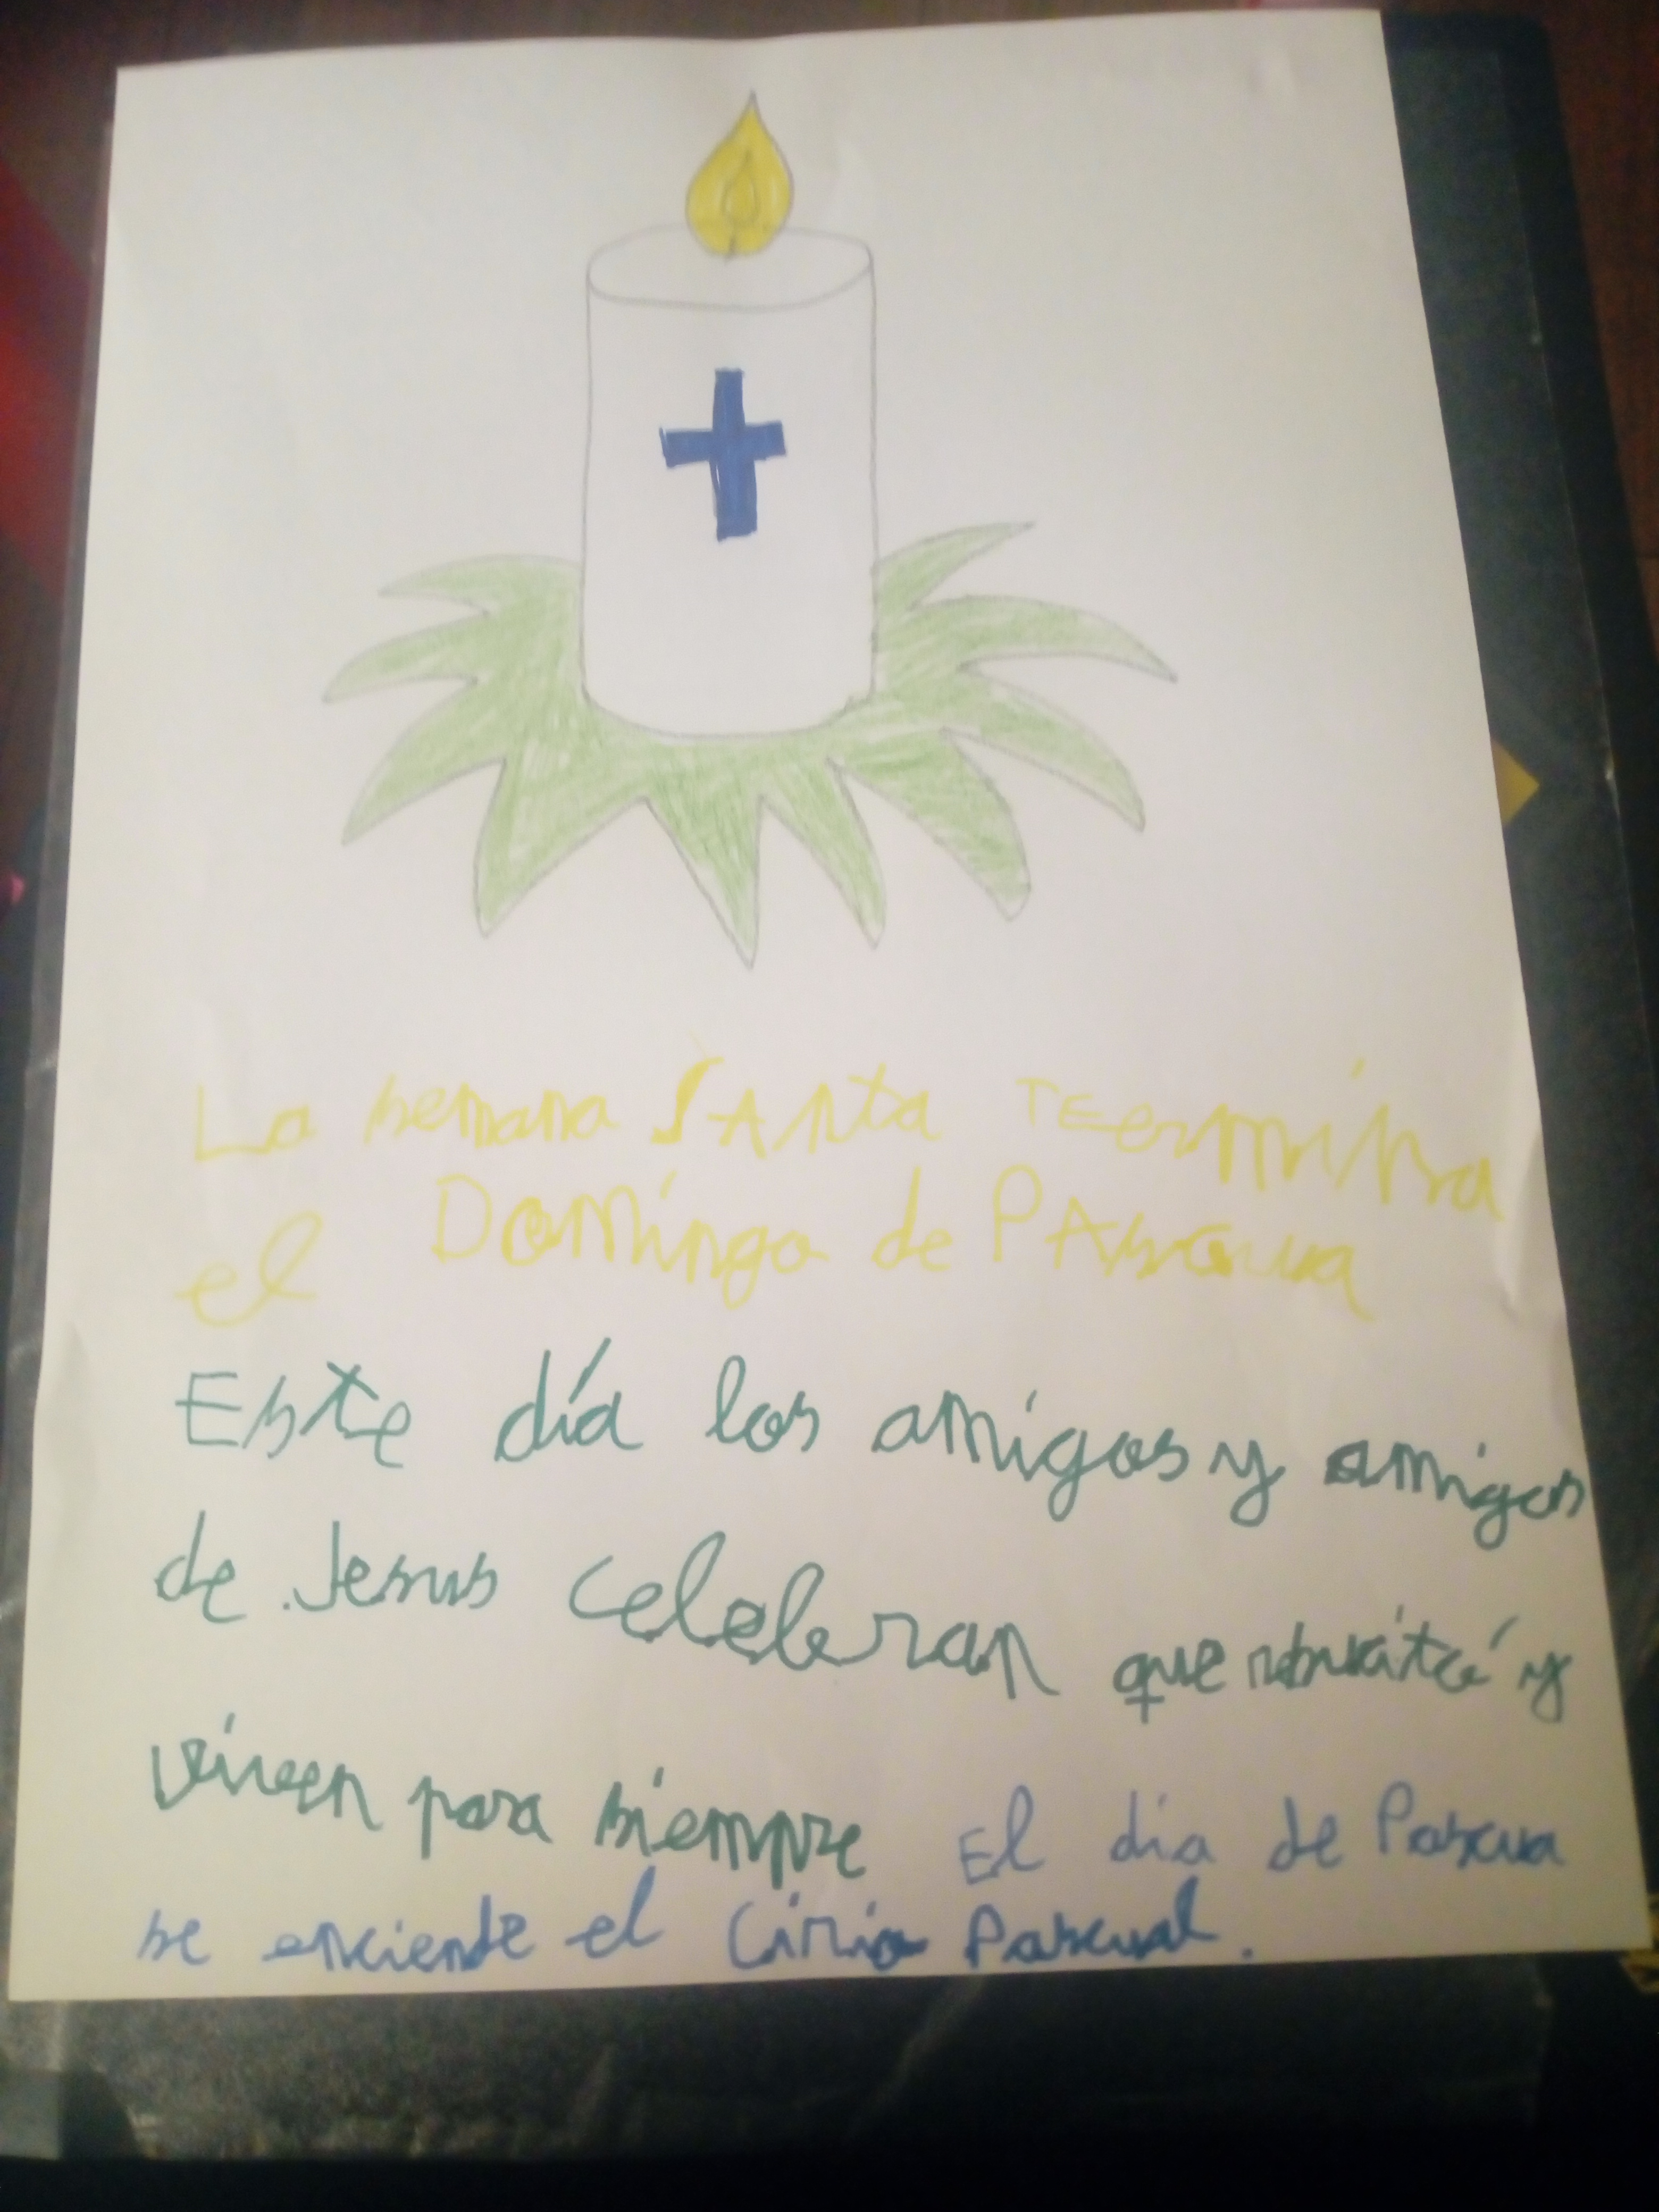 La semana SAnta TEermina
el Domingo de PAscua
Este día los amigos y amigos
de Jesus celebran que y
viveen para siempre El dia de Pascua
se enciende el Cirio Pascual.